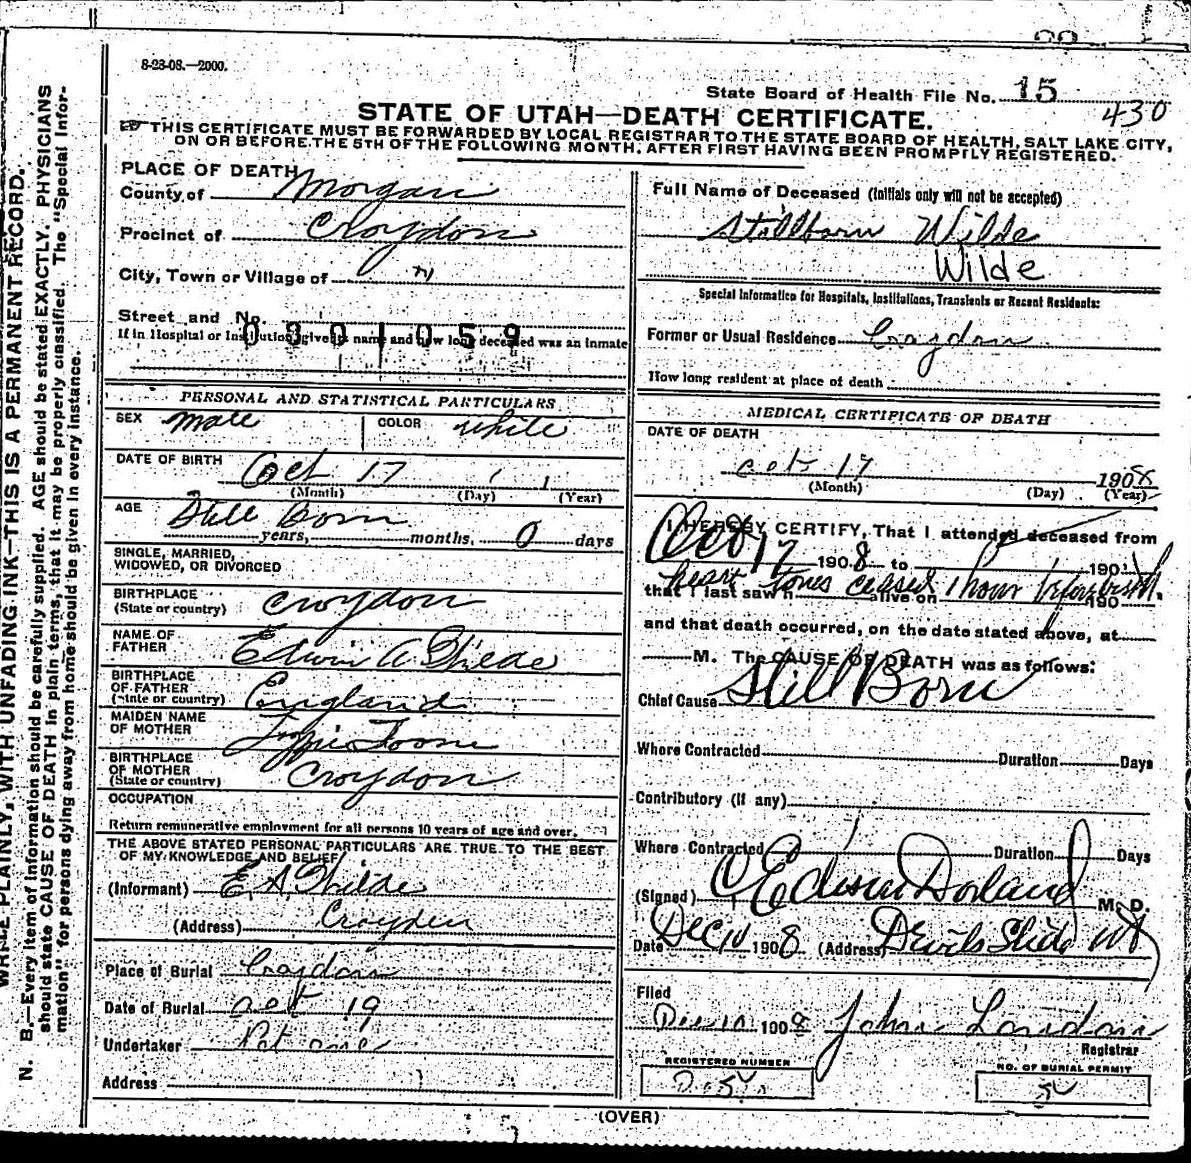 8-28-08.—2000.
State Board of Health File No. 15
430
STATE OF UTAH—DEATH CERTIFICATE.
THIS CERTIFICATE MUST BE FORWARDED BY LOCAL REGISTRAR TO THE STATE BOARD OF HEALTH, SALT LAKE CITY,
ON OR BEFORE THE 5TH OF THE FOLLOWING MONTH, AFTER FIRST HAVING BEEN PROMPTLY REGISTERED.
PLACE OF DEATH
County of Morgan
Precinct of Croydon
City, Town or Village of
Street and No.
0301059
If in Hospital or Institution give its name and how long deceased was an inmate
PERSONAL AND STATISTICAL PARTICULARS
SEX male COLOR white
DATE OF BIRTH Oct 17
(Month) (Day) (Year)
AGE Still Born
years, months, 0 days
SINGLE, MARRIED,
WIDOWED, OR DIVORCED
BIRTHPLACE
(State or country) Croydon
NAME OF
FATHER Edwin A Wilde
BIRTHPLACE
OF FATHER
(State or country) England
MAIDEN NAME
OF MOTHER Toone
BIRTHPLACE
OF MOTHER
(State or country) Croydon
OCCUPATION
Return remunerative employment for all persons 10 years of age and over.
THE ABOVE STATED PERSONAL PARTICULARS ARE TRUE TO THE BEST
OF MY KNOWLEDGE AND BELIEF
(Informant) E A Wilde
(Address) Croyden
Place of Burial Croydon
Date of Burial oct 19
Undertaker
Address
Full Name of Deceased (Initials only will not be accepted)
Stillborn Wilde
Wilde
Special Information for Hospitals, Institutions, Transients or Recent Residents:
Former or Usual Residence Croydon
How long resident at place of death
MEDICAL CERTIFICATE OF DEATH
DATE OF DEATH
oct 17 1908
(Month) (Day) (Year)
I HEREBY CERTIFY, That I attended deceased from
Oct 17 1908 to 190
heart tones ceased 1 hour before birth.
that I last saw h alive on 190
and that death occurred, on the date stated above, at
M. The CAUSE OF DEATH was as follows:
Chief Cause Still Born
Where Contracted Duration Days
Contributory (if any)
Where Contracted Duration Days
(Signed) Edison Dorland M. D.
Date Dec 10 1908 (Address) Devils Slide Ut
Filed
Dec 10 1908 John London
Registrar
REGISTERED NUMBER
NO. OF BURIAL PERMIT
(OVER)
WRITE PLAINLY, WITH UNFADING INK—THIS IS A PERMANENT RECORD.
N. B.—Every item of information should be carefully supplied. AGE should be stated EXACTLY. PHYSICIANS
should state CAUSE OF DEATH in plain terms, that it may be properly classified. The "Special Infor-
mation" for persons dying away from home should be given in every instance.